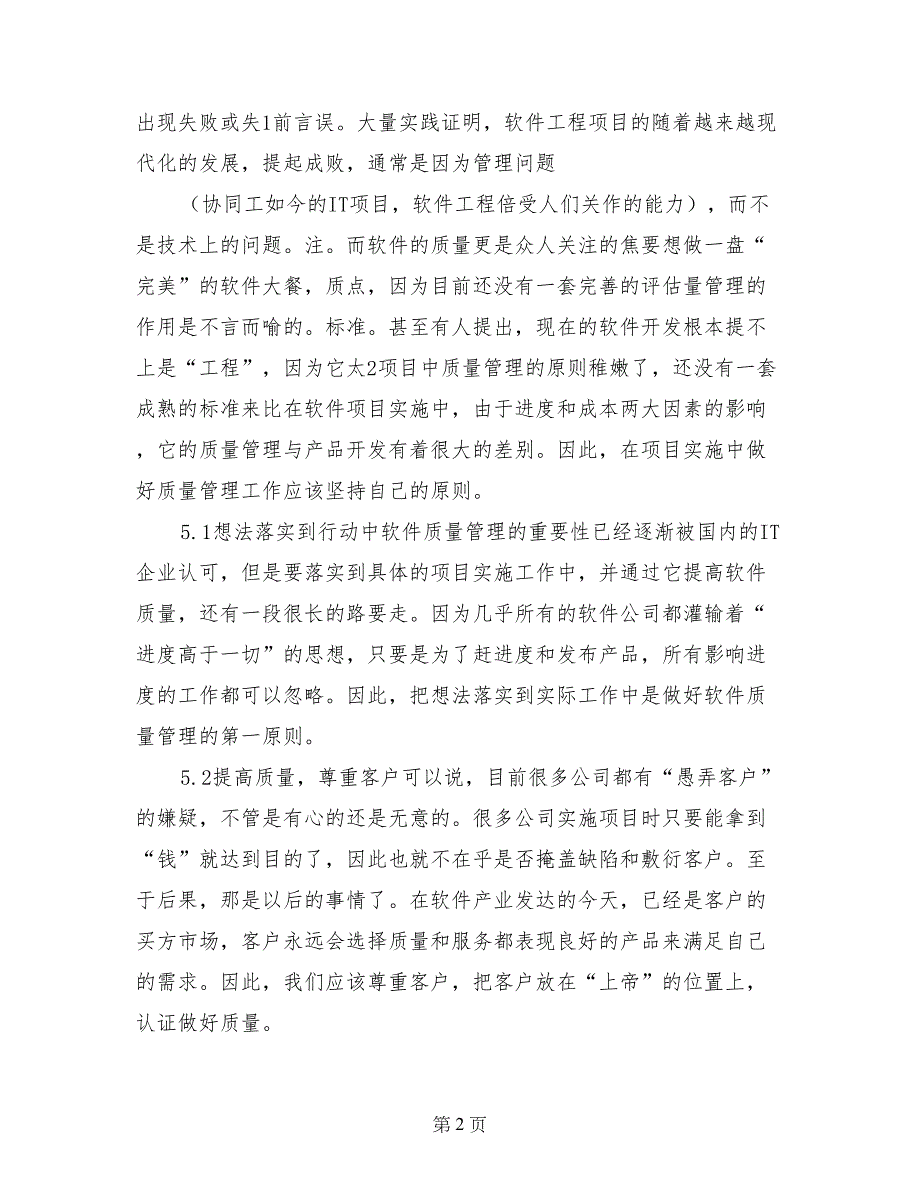 出现失败或失1前言误。大量实践证明，软件工程项目的随着越来越现
代化的发展，提起成败，通常是因为管理问题
（协同工如今的IT项目，软件工程倍受人们关作的能力），而不
是技术上的问题。注。而软件的质量更是众人关注的焦要想做一盘“
完美”的软件大餐，质点，因为目前还没有一套完善的评估量管理的
作用是不言而喻的。标准。甚至有人提出，现在的软件开发根本提不
上是“工程”，因为它太2项目中质量管理的原则稚嫩了，还没有一套
成熟的标准来比在软件项目实施中，由于进度和成本两大因素的影响
，它的质量管理与产品开发有着很大的差别。因此，在项目实施中做
好质量管理工作应该坚持自己的原则。
5.1想法落实到行动中软件质量管理的重要性已经逐渐被国内的IT
企业认可，但是要落实到具体的项目实施工作中，并通过它提高软件
质量，还有一段很长的路要走。因为几乎所有的软件公司都灌输着“
进度高于一切”的思想，只要是为了赶进度和发布产品，所有影响进
度的工作都可以忽略。因此，把想法落实到实际工作中是做好软件质
量管理的第一原则。
5.2提高质量，尊重客户可以说，目前很多公司都有“愚弄客户”
的嫌疑，不管是有心的还是无意的。很多公司实施项目时只要能拿到
“钱”就达到目的了，因此也就不在乎是否掩盖缺陷和敷衍客户。至
于后果，那是以后的事情了。在软件产业发达的今天，已经是客户的
买方市场，客户永远会选择质量和服务都表现良好的产品来满足自己
的需求。因此，我们应该尊重客户，把客户放在“上帝”的位置上，
认证做好质量。
第 2 页